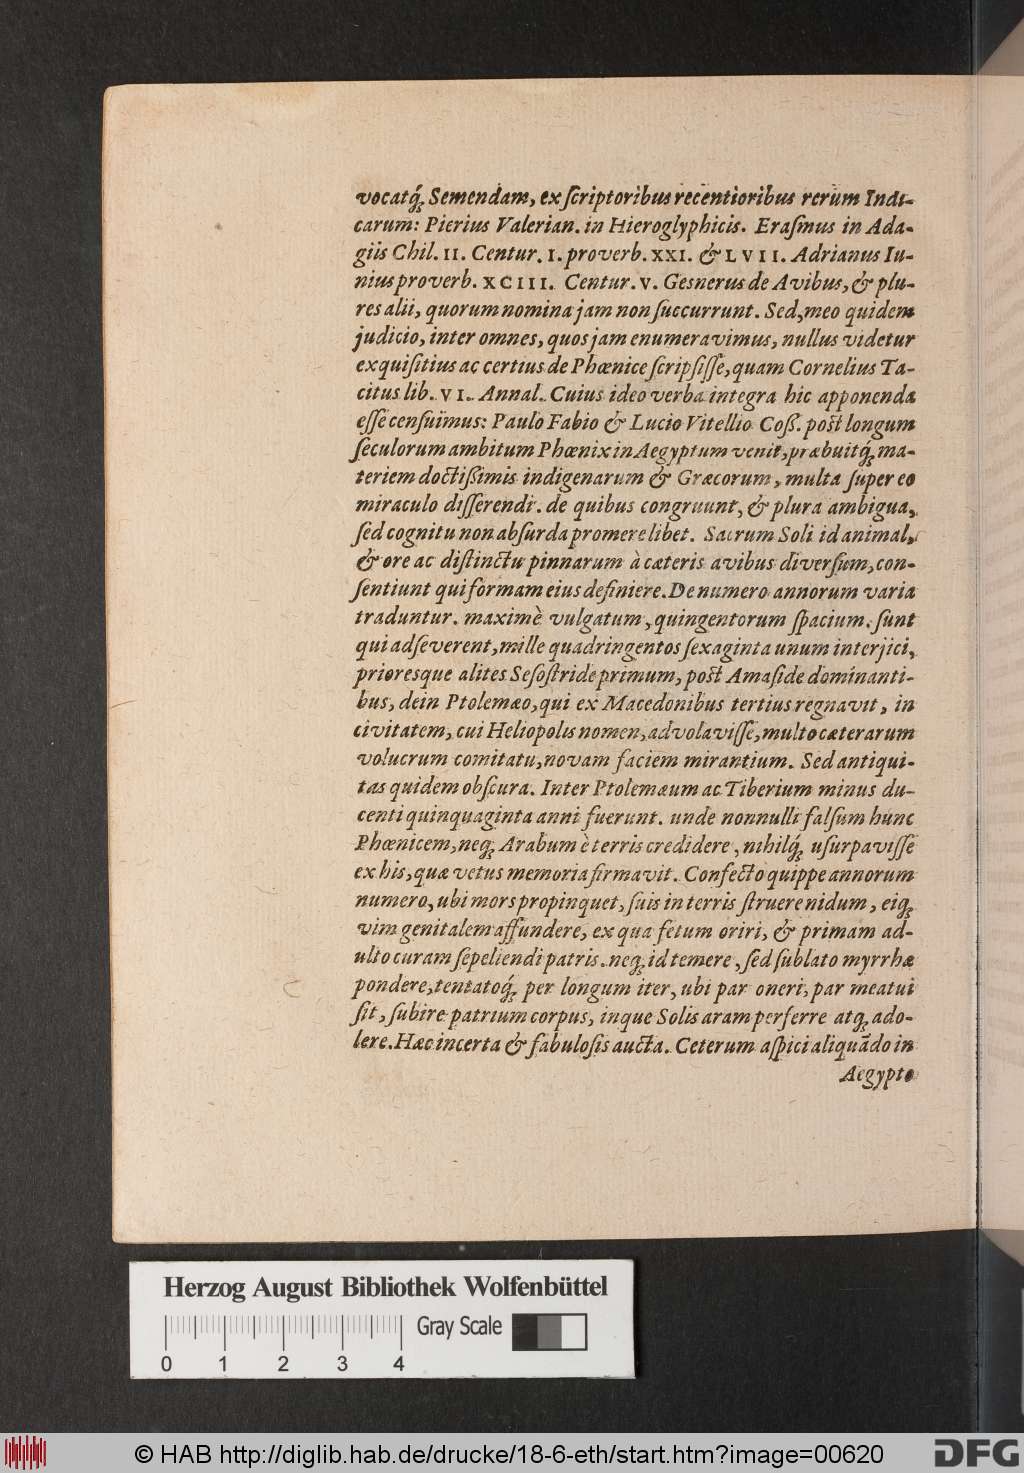 vocatq́ꝫ Semendam, ex ſcriptoribus recentioribus rerum Indi-
carum: Pierius Valerian. in Hieroglyphicis. Eraſmus in Ada-
giis Chil. II. Centur. I. proverb. XXI. & LVII. Adrianus Iu-
nius proverb. XCIII. Centur. V. Gesnerus de Avibus, & plu-
res alii, quorum nomina jam non ſuccurrunt. Sed, meo quidem
judicio, inter omnes, quos jam enumeravimus, nullus videtur
exquiſitius ac certius de Phœnice ſcripſiſſe, quam Cornelius Ta-
citus lib. VI. Annal. Cuius ideo verba integra hic apponenda
eſſe cenſuimus: Paulo Fabio & Lucio Vitellio Coſſ. poſt longum
ſeculorum ambitum Phœnix in Aegyptum venit, præbuitq́ꝫ ma-
teriem doctiſſimis indigenarum & Græcorum, multa ſuper eo
miraculo diſſerendi. de quibus congruunt, & plura ambigua,
ſed cognitu non abſurda promere libet. Sacrum Soli id animal,
& ore ac diſtinctu pinnarum à cæteris avibus diverſum, con-
ſentiunt qui formam eius definiere. De numero annorum varia
traduntur. maximè vulgatum, quingentorum ſpacium. ſunt
qui adſeverent, mille quadringentos ſexaginta unum interjici,
prioresque alites Seſoſtride primum, poſt Amaſide dominanti-
bus, dein Ptolemæo, qui ex Macedonibus tertius regnavit, in
civitatem, cui Heliopolis nomen, advolaviſſe, multo cæterarum
volucrum comitatu, novam faciem mirantium. Sed antiqui-
tas quidem obſcura. Inter Ptolemæum ac Tiberium minus du-
centi quinquaginta anni fuerunt. unde nonnulli falſum hunc
Phœnicem, neqꝫ Arabum è terris credidere, nihilq́ꝫ uſurpaviſſe
ex his, quæ vetus memoria firmavit. Confecto quippe annorum
numero, ubi mors propinquet, ſuis in terris ſtruere nidum, eiqꝫ
vim genitalem affundere, ex qua fetum oriri, & primam ad-
ulto curam ſepeliendi patris. neqꝫ id temere, ſed ſublato myrrhæ
pondere, tentatoq́ꝫ per longum iter, ubi par oneri, par meatui
ſit, ſubire patrium corpus, inque Solis aram perferre atqꝫ ado-
lere. Hæc incerta & fabuloſis aucta. Ceterum aſpici aliquãdo in
Aegypto
Herzog August Bibliothek Wolfenbüttel
Gray Scale
0 1 2 3 4
© HAB http://diglib.hab.de/drucke/18-6-eth/start.htm?image=00620
DFG